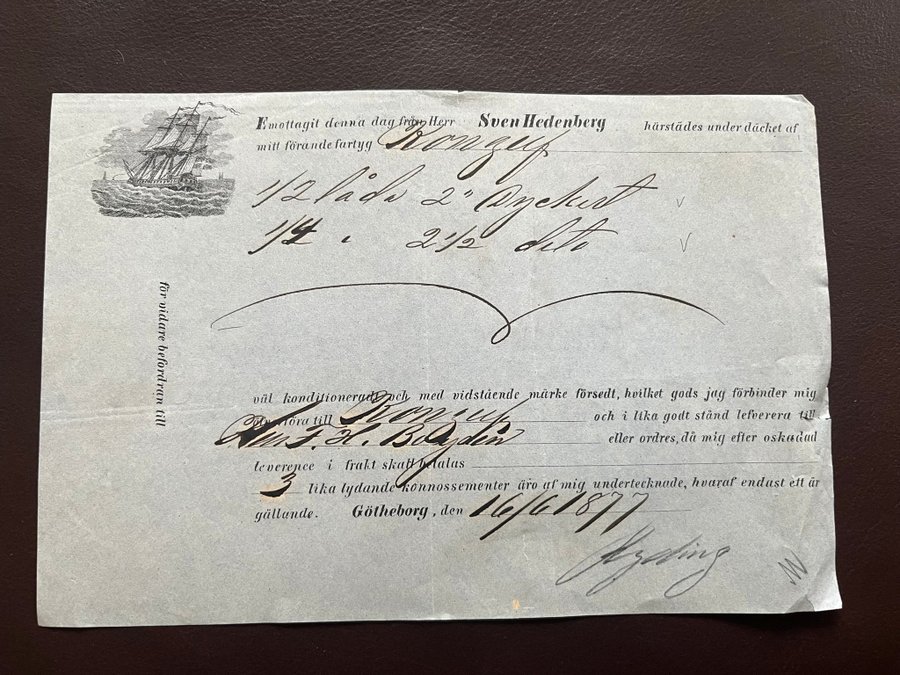 Emottagit denna dag från Herr Sven Hedenberg härstädes under däcket af
mitt förande fartyg
1/2 låda 2"
1/4 " 2 1/2 dito
för vidare befordran till
väl konditioneradt och med vidstående märke försedt, hvilket gods jag förbinder mig
till och i lika godt stånd lefverera till
F. H. eller ordres, då mig efter oskadad
leverence i frakt skall betalas
3 lika lydande konnossementer äro af mig undertecknade, hvaraf endast ett är
gällande. Götheborg, den 16/6 1877